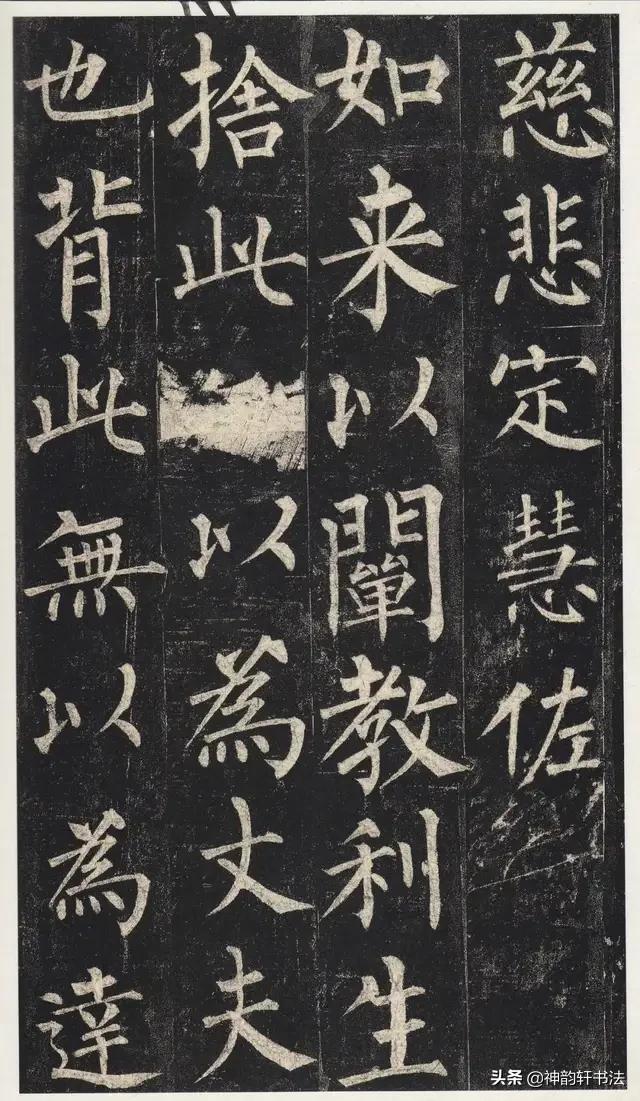 慈悲定慧佐
如来以闡教利生
捨此以為丈夫
也背此無以為達
头条 @神韵轩书法